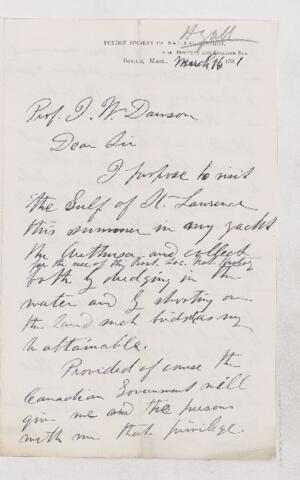 Hyatt
BOSTON SOCIETY OF NATURAL HISTORY,
BOSTON, MASS. March 16 1881
Prof. J. W. Dawson
Dear Sir
I purpose to visit
the Gulf of St. Lawrence
this summer in my yacht
the Arethusa and collect
for the use of the Bost. Soc. Nat. History
both by dredging in the
water and by shooting on
the land such birds as may
be attainable.
Provided of course the
Canadian Government will
give me and the persons
with me that privilege.